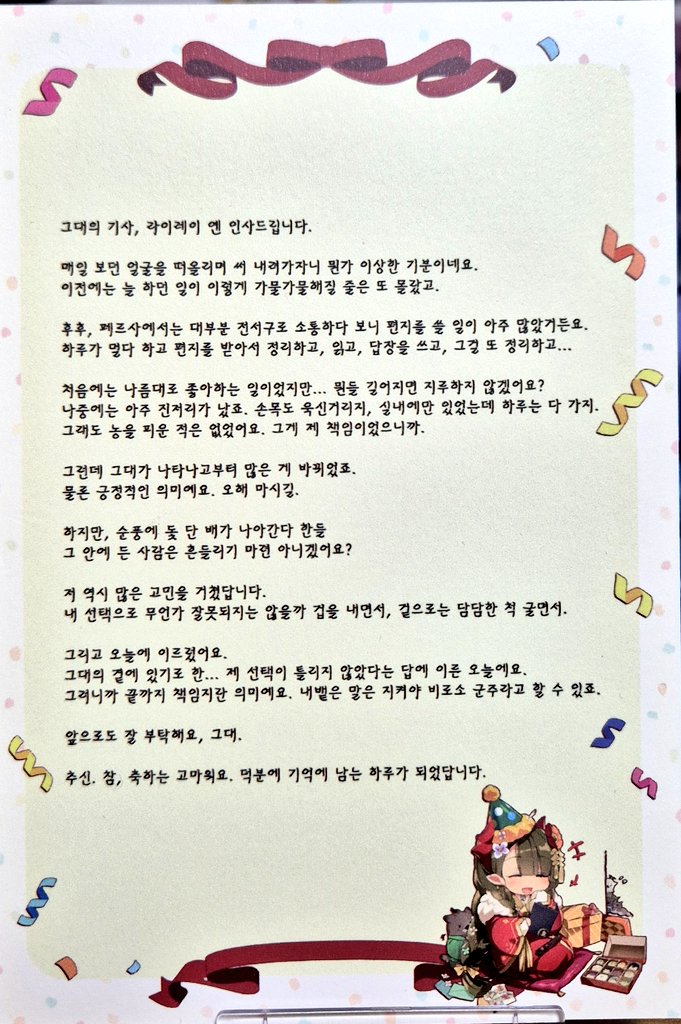 그대의 기사, 라이레이 옌 인사드립니다.
매일 보던 얼굴을 떠올리며 써 내려가자니 뭔가 이상한 기분이네요.
이전에는 늘 하던 일이 이렇게 가물가물해질 줄은 또 몰랐고.
후후, 페르사에서는 대부분 전서구로 소통하다 보니 편지를 쓸 일이 아주 많았거든요.
하루가 멀다 하고 편지를 받아서 정리하고, 읽고, 답장을 쓰고, 그걸 또 정리하고...
처음에는 나름대로 좋아하는 일이었지만... 뭔들 길어지면 지루하지 않겠어요?
나중에는 아주 진저리가 났죠. 손목도 욱신거리지, 실내에만 있었는데 하루는 다 가지.
그래도 농을 피운 적은 없었어요. 그게 제 책임이었으니까.
그런데 그대가 나타나고부터 많은 게 바뀌었죠.
물론 긍정적인 의미예요. 오해 마시길.
하지만, 순풍에 돛 단 배가 나아간다 한들
그 안에 든 사람은 흔들리기 마련 아니겠어요?
저 역시 많은 고민을 거쳤답니다.
내 선택으로 무언가 잘못되지는 않을까 겁을 내면서, 겉으로는 담담한 척 굴면서.
그리고 오늘에 이르렀어요.
그대의 곁에 있기로 한... 제 선택이 틀리지 않았다는 답에 이른 오늘에요.
그러니까 끝까지 책임지란 의미예요. 내뱉은 말은 지켜야 비로소 군주라고 할 수 있죠.
앞으로도 잘 부탁해요, 그대.
추신. 참, 축하는 고마워요. 덕분에 기억에 남는 하루가 되었답니다.